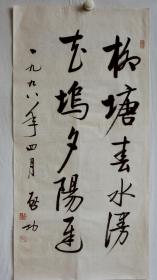 柳塘春水漫
花塢夕陽遲
一九九八年四月 啓功